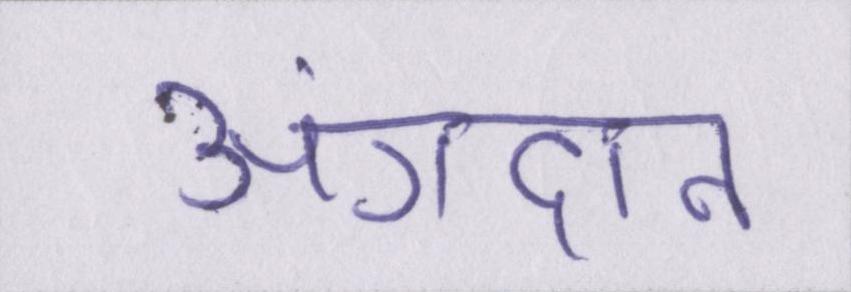 अंगदान